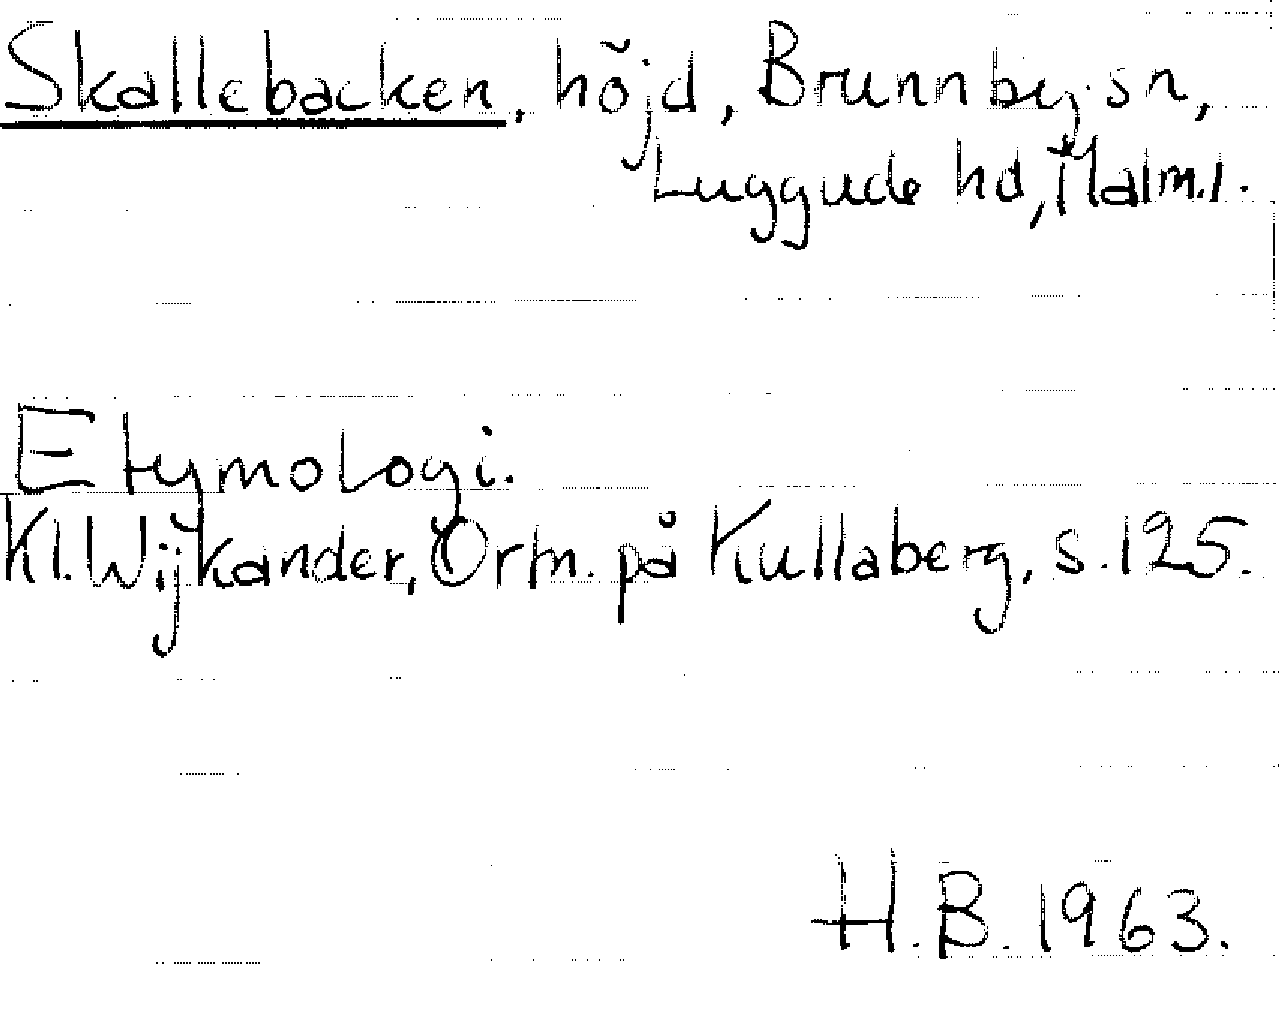 Skallebacken, höjd, Brunnby sn,
Luggude hd, Malm.l.
Etymologi.
Kl. Wijkander, Ortn. på Kullaberg, s. 125.
H.B. 1963.